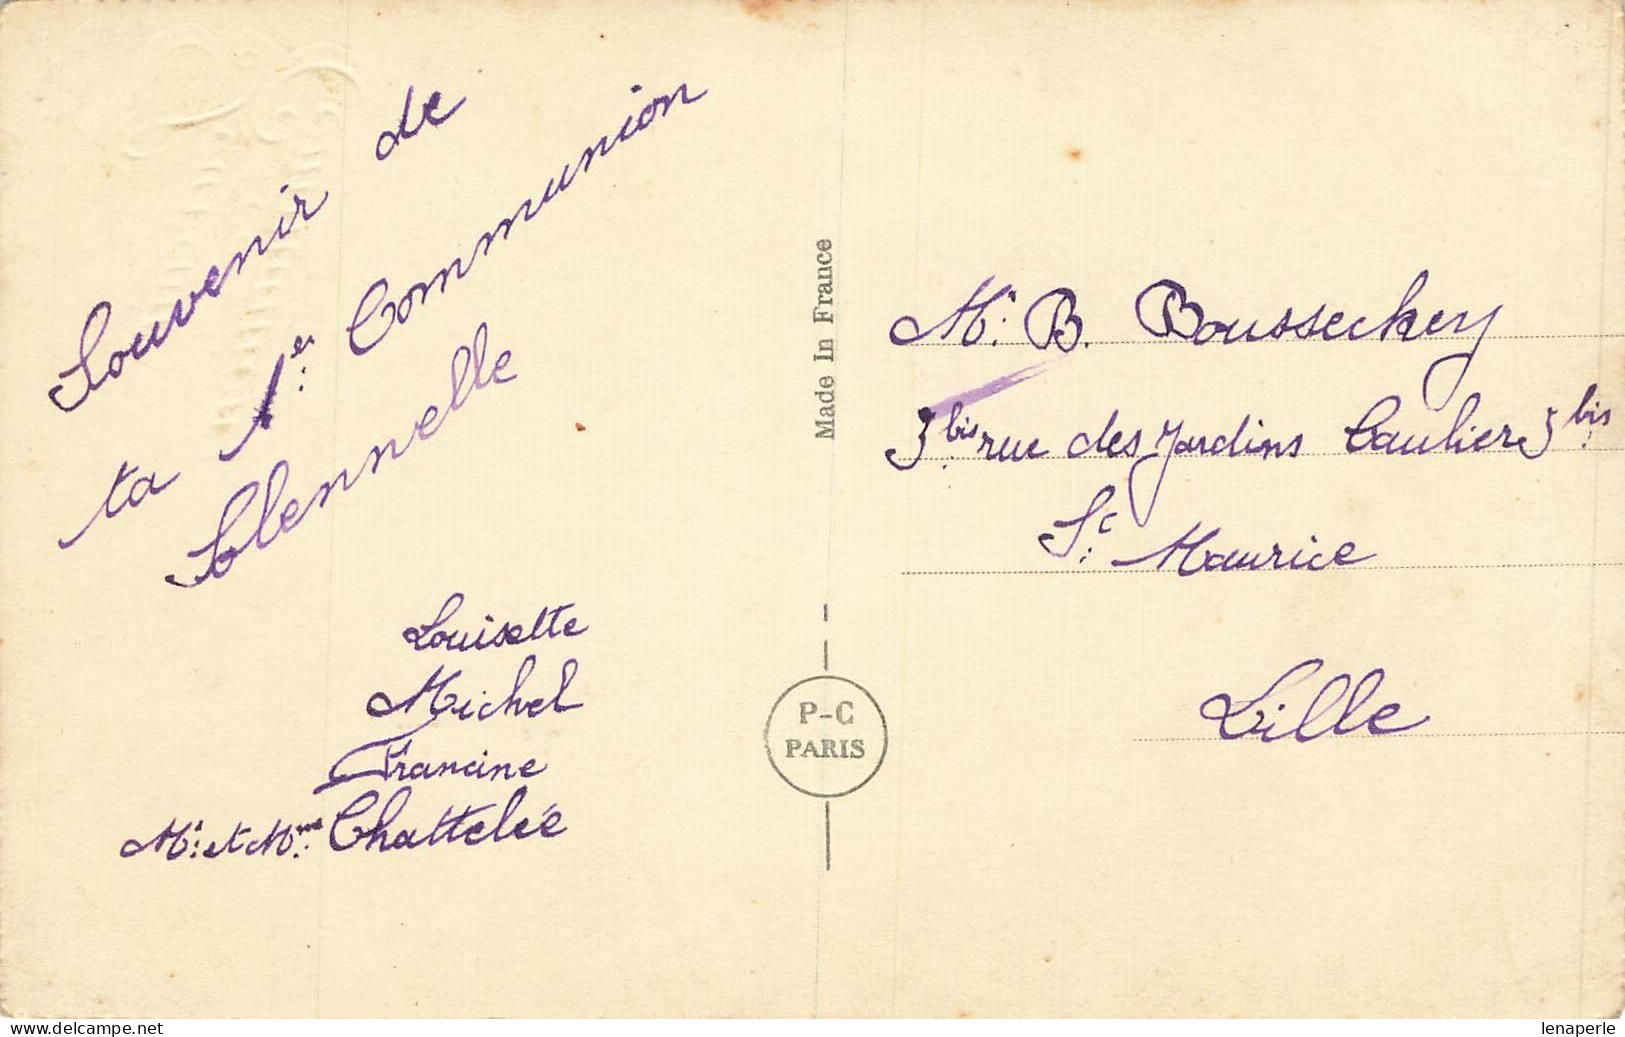 Souvenir de
ta 1er Communion
Solennelle
Louisette
Michel
Francine
Mr et Mme Chattelée
Made In France
P-C
PARIS
Mr B. Boussechey
3bis rue des Jardins Caulier 3bis
St Maurice
Lille
www.delcampe.net
lenaperle